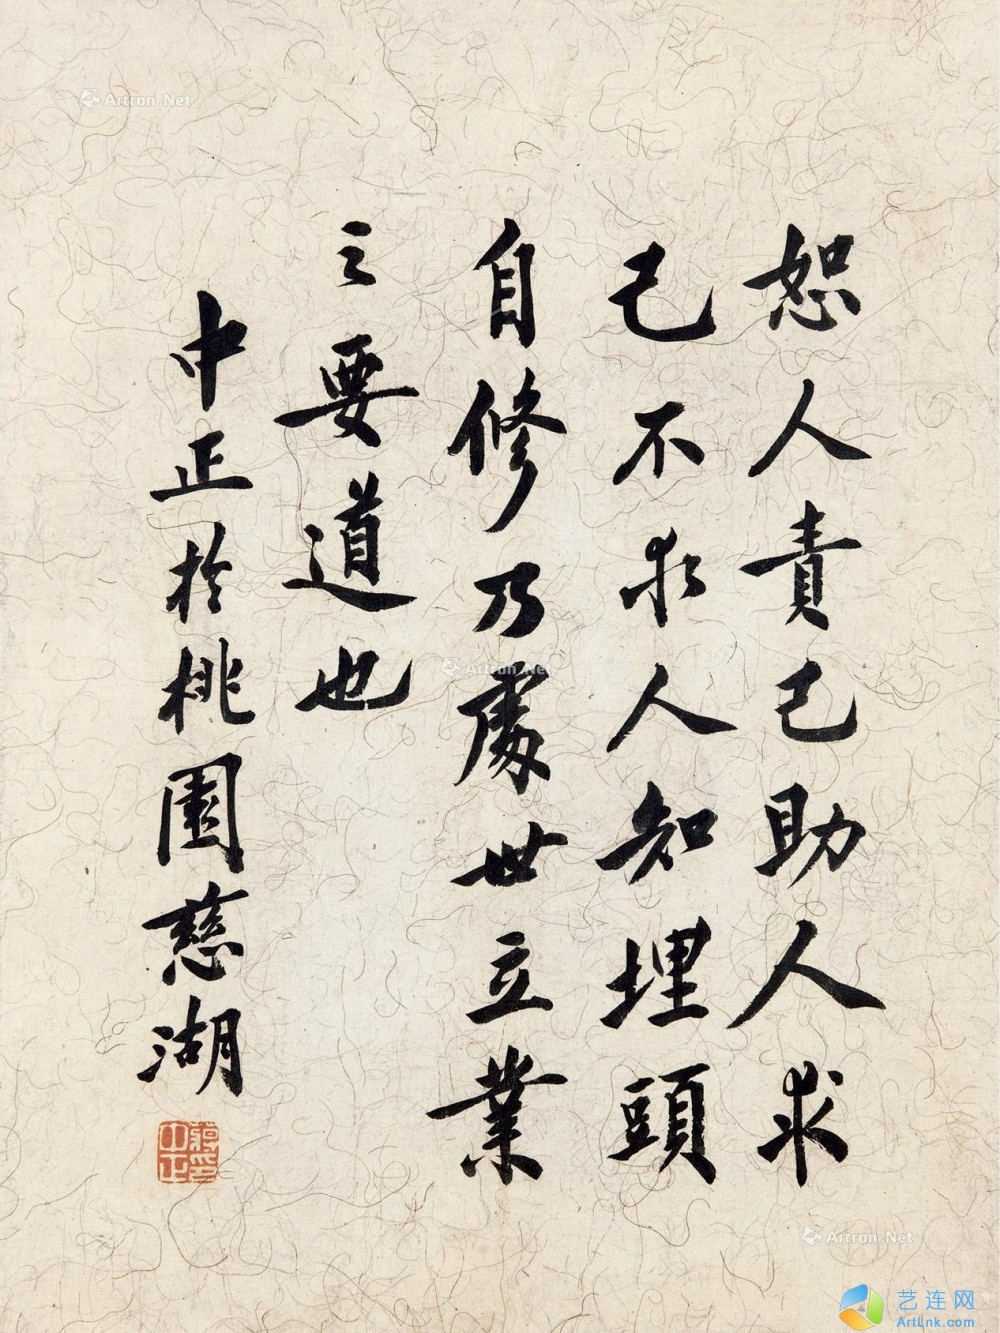 恕人責己助人求
己不求人知埋頭
自修乃處世立業
之要道也
中正於桃園慈湖
蔣中正印
Artron.Net
Artron.Net
Artron.Net
艺连网
ArtLnk.com